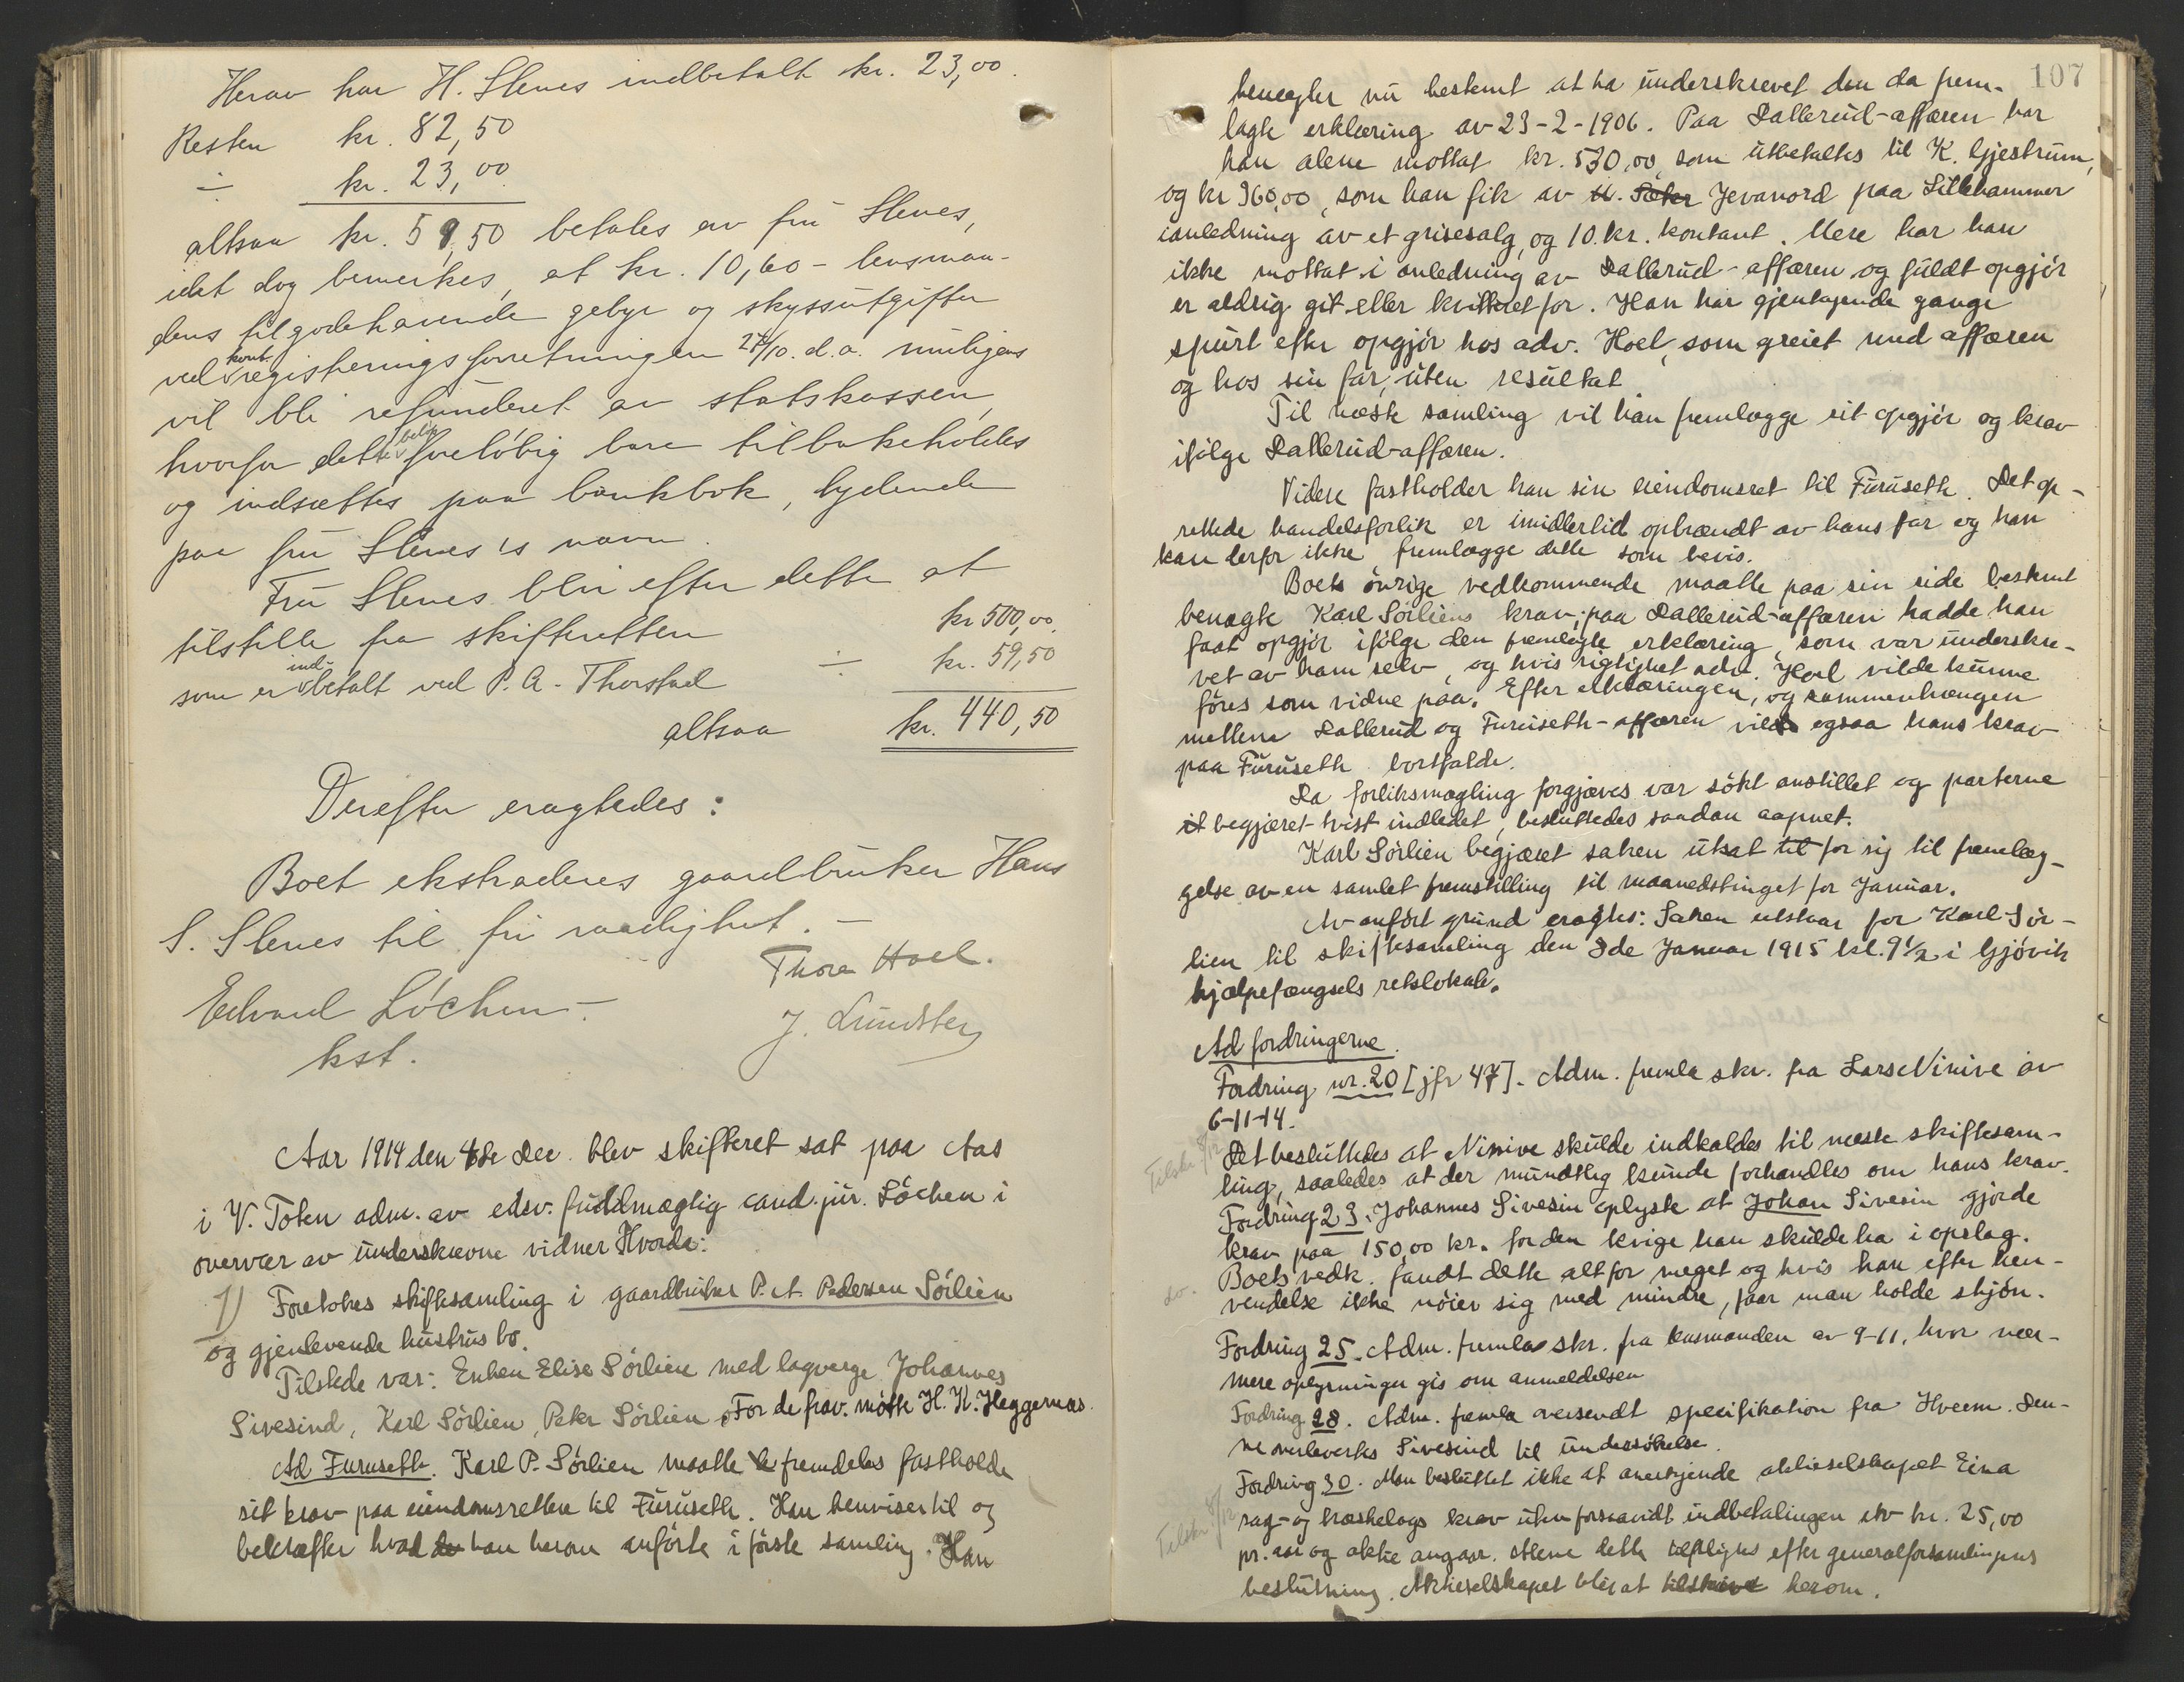 Herav har H. Stenes indbetalt kr. 23,00.
Resten kr. 82,50
÷ kr. 23,00
altsaa kr. 59,50 betales av fru Stenes,
idet dog bemerkes, at kr. 10,60 - lensman-
dens tilgodehavende gebyr og skyssutgifter
ved kont. registreringsforretningen 27/10. d.a. muligens
vil bli refunderet av statskassen,
hvorfor dette beløp foreløbig bare tilbakeholdes
og indsættes paa bankbok, lydende
paa fru Stenes's navn.
Fru Stenes blir efter dette at
tilstille fra skifteretten kr 500,00
som er indbetalt ved P. A. Thorstad ÷ kr. 59,50
altsaa kr. 440,50
Derefter eragtedes:
Boet ekstraderes gaardbruker Hans
S. Stenes til fri raadighet. -
Thora Hoel.
Edvard Löchen -
J. Lundsten
kst.
Aar 1914 den 4de Dec. blev skifteret sat paa Aas
i V. Toten adm. av edsv. fuldmægtig cand. jur. Löchen i
overvær av underskrevne vidner Hvorda:
1) Foretokes skiftesamling i gaardbruker P. A. Pedersen Sörlien
og gjenlevende hustrus bo.
Tilstede var: Enken Elise Sörlien med lagverge Johannes
Sivesind, Karl Sörlien, Peter Sörlien. For de frav. møtte H. K. Heggernæs.
Ad Furuseth. Karl P. Sörlien maatte fremdeles fastholde
sit krav paa eiendomsretten til Furuseth. Han henviser til og
bekræfter hvad han herom anførte i første samling. Han
107
benegter nu bestemt at ha underskrevet den da frem-
lagte erklæring av 23-2-1906. Paa Dallerud-affæren har
han alene mottat kr. 530,00, som utbetaltes til K. Gjestrum,
og kr 360,00, som han fik av Jevanord paa Lillehammer
ianledning av et grisesalg, og 10. kr. kontant. Mere har han
ikke mottat i anledning av Dallerud-affæren og fuldt opgjör
er aldrig git eller kvitteret for. Han har gjentagende gange
spurt efter opgjör hos adv. Hoel, som greiet med affæren
og hos sin far, uten resultat.
Til næste samling vil han fremlægge sit opgjör og krav
ifölge Dallerud-affæren.
Videre fastholder han sin eiendomsret til Furuseth. Det op-
rettede handelsforlik er imidlertid opbrændt av hans far og han
kan derfor ikke fremlægge dette som bevis.
Boets övrige vedkommende maatte paa sin side bestemt
benegte Karl Sörliens krav; paa Dallerud-affæren hadde han
faat opgjör ifölge den fremlagte erklæring, som var underskre-
vet av ham selv, og hvis rigtighet adv. Hoel vilde kunne
föres som vidne paa. Efter erklæringen, og sammenhængen
mellem Dallerud og Furuseth-affæren vilde ogsaa hans krav
paa Furuseth bortfalde.
Da forliksmægling forgjæves var sökt anstillet og parterne
begjæret tvist indledet, besluttedes saadan aapnet.
Karl Sörlien begjæret saken utsat for sig til fremlæg-
gelse av en samlet fremstilling til maanedstinget for Januar.
Av anfört grund eragtes: Saken utstaar for Karl Sör-
lien til skiftesamling den 8de Januar 1915 kl. 9 1/2 i Gjövik
hjælpefængsels retslokale.
Ad fordringerne.
Fordring nr. 20 [jfr 47]. Adm. fremla skr. fra Lars Ninive av
6-11-14.
Tilskr 8/12 Det besluttedes at Ninive skulde indkaldes til næste skiftesam-
ling, saaledes at der mundtlig kunde forhandles om hans krav.
Fordring 23. Johannes Sivesin oplyste at Johan Sivesin gjorde
krav paa 150,00 kr. for den kvige han skulde ha i opslag.
Boets vedk. fandt dette altfor meget og hvis han efter hen-
do. vendelse ikke nöier sig med mindre, faar man holde skjön.
Fordring 25. Adm. fremla skr. fra lensmanden av 9-11, hvor nær-
mere oplysninger gis om anmeldelsen
Fordring 28. Adm. fremla oversendt specifikation fra Hveem. Den-
ne overlevertes Sivesind til undersökelse.
Fordring 30. Man besluttet ikke at anerkjende aktieselskapet Eina
Tilskr 8/12 sag- og træskelags krav uten forsaavidt indbetalingen av kr. 25,00
pr. aar og aktie angaar. Alene dette efter generalforsamlingens
beslutning. Aktieselskapet blir at tilskrive herom.